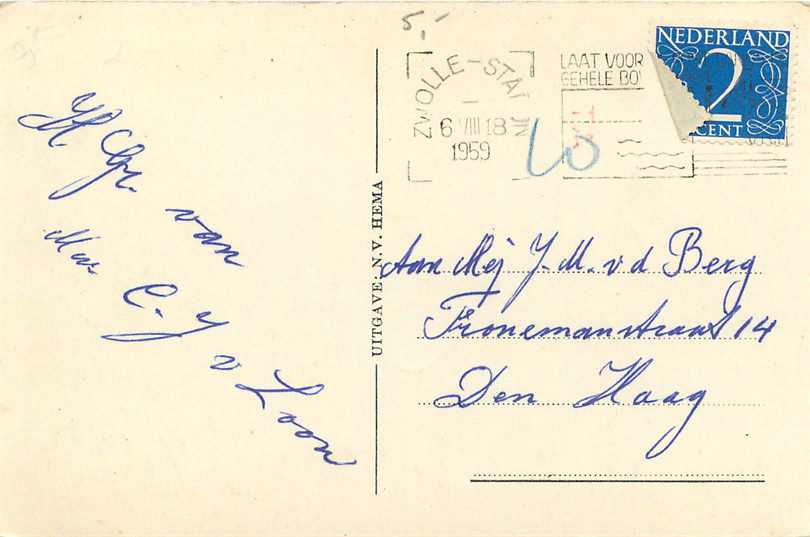 5,-
NEDERLAND
2
CENT
ZWOLLE-STA
6 VIII 18
1959
LAAT VOOR
GEHELE BO
H. Gr. van
Mw
C. J v Loon
UITGAVE: N.V. HEMA
Aan Mej J. M. v d Berg
Fronemanstraat 14
Den Haag